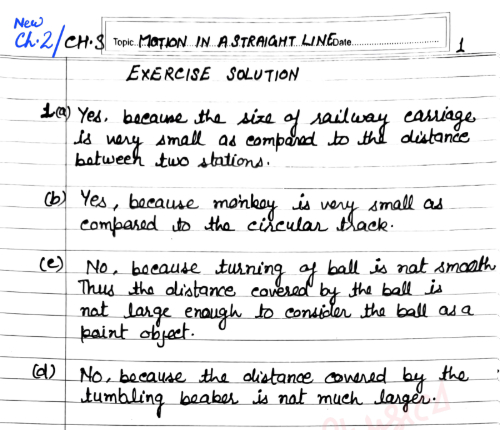 New
Ch.2/CH.3 Topic MOTION IN A STRAIGHT LINE Date 1
EXERCISE SOLUTION
1(a) Yes, because the size of railway carriage
is very small as compared to the distance
between two stations.
(b) Yes, because monkey is very small as
compared to the circular track.
(c) No, because turning of ball is not smooth
Thus the distance covered by the ball is
not large enough to consider the ball as a
point object.
(d) No, because the distance covered by the
tumbling beaker is not much larger.